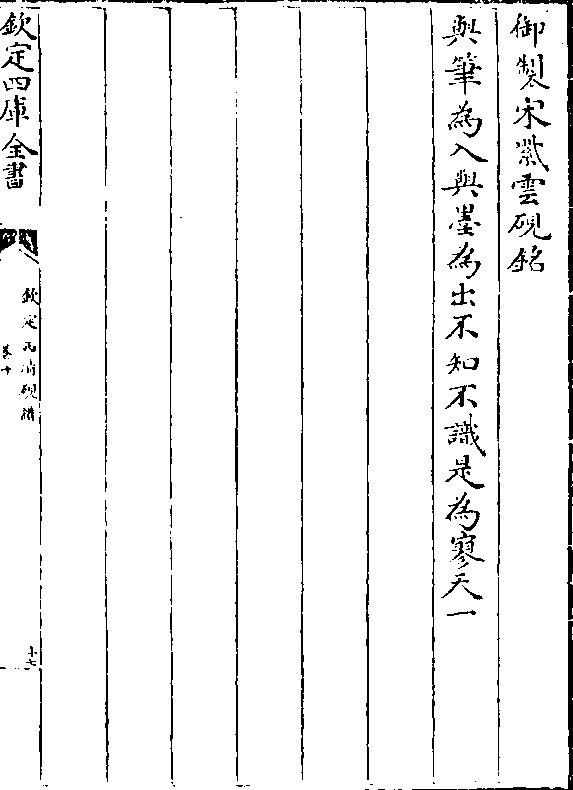 御製宋紫雲硯銘
與筆為入與墨為出不知不識是為寥天一
欽定四庫全書
欽定西清硯譜
卷十
十七